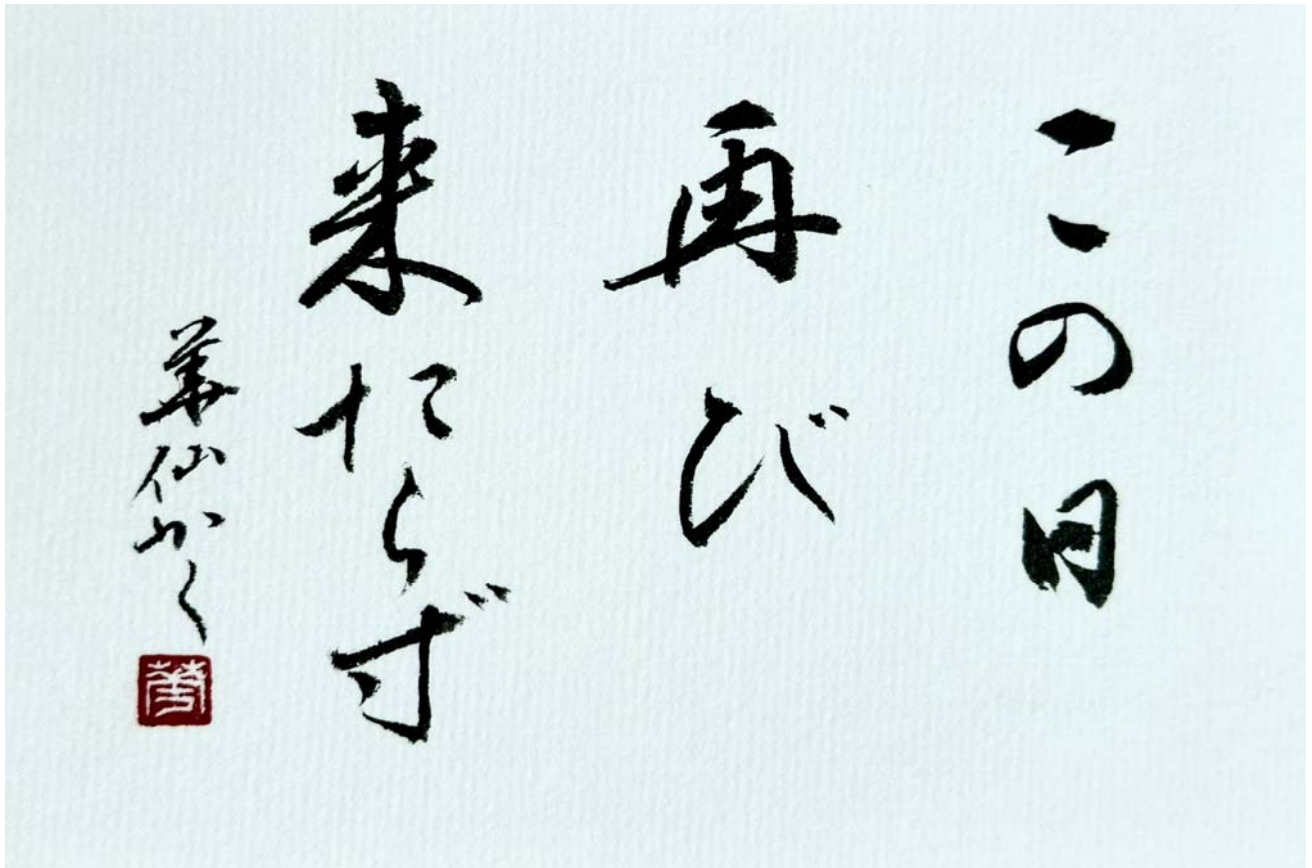 この日
再び
来たらず
華仙かく
華